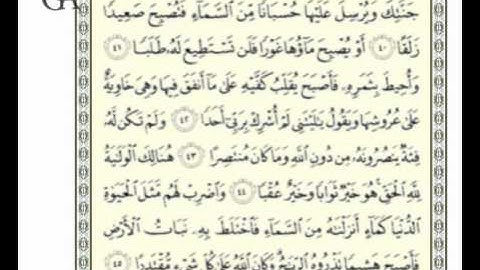 GA
جَنَّتِكَ وَيُرْسِلَ عَلَيْهَا حُسْبَانًا مِّنَ السَّمَاءِ فَتُصْبِحَ صَعِيدًا
زَلَقًا ٤٠ أَوْ يُصْبِحَ مَاؤُهَا غَوْرًا فَلَن تَسْتَطِيعَ لَهُ طَلَبًا ٤١
وَأُحِيطَ بِثَمَرِهِ فَأَصْبَحَ يُقَلِّبُ كَفَّيْهِ عَلَى مَا أَنفَقَ فِيهَا وَهِيَ خَاوِيَةٌ
عَلَى عُرُوشِهَا وَيَقُولُ يَلَيْتَنِي لَمْ أُشْرِكْ بِرَبِّي أَحَدًا ٤٢ وَلَمْ تَكُن لَّهُ
فِئَةٌ يَنصُرُونَهُ مِن دُونِ اللَّهِ وَمَا كَانَ مُنتَصِرًا ٤٣ هُنَالِكَ الْوَلَايَةُ
لِلَّهِ الْحَقِّ هُوَ خَيْرٌ ثَوَابًا وَخَيْرٌ عُقْبًا ٤٤ وَاضْرِبْ لَهُم مَّثَلَ الْحَيَوةِ
الدُّنْيَا كَمَاءٍ أَنزَلْنَهُ مِنَ السَّمَاءِ فَاخْتَلَطَ بِهِ نَبَاتُ الْأَرْضِ
فَأَصْبَحَ هَشِيمًا تَذْرُوهُ الرِّيَحُ وَكَانَ اللَّهُ عَلَى كُلِّ شَيْءٍ مُّقْتَدِرًا ٤٥